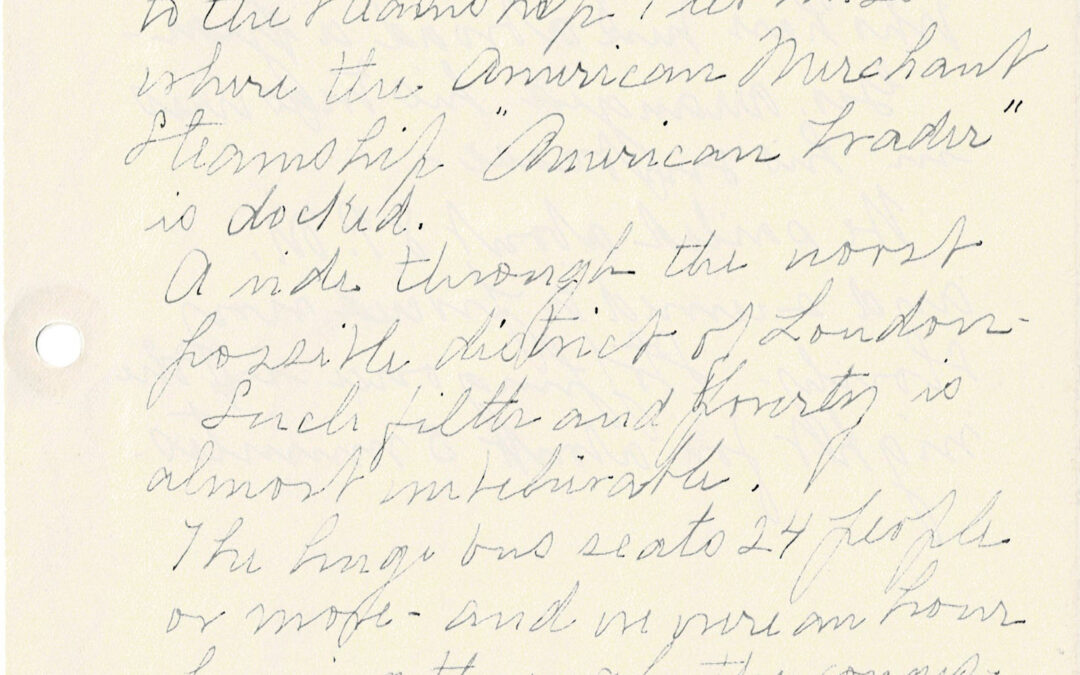 to the Steamship Pier
where the American Merchant
Steamship "American Trader"
is docked.
A ride through the worst
possible district of London-
Such filth and poverty is
almost unbelievable.
The huge bus seats 24 people
or more - and we were an hour
the